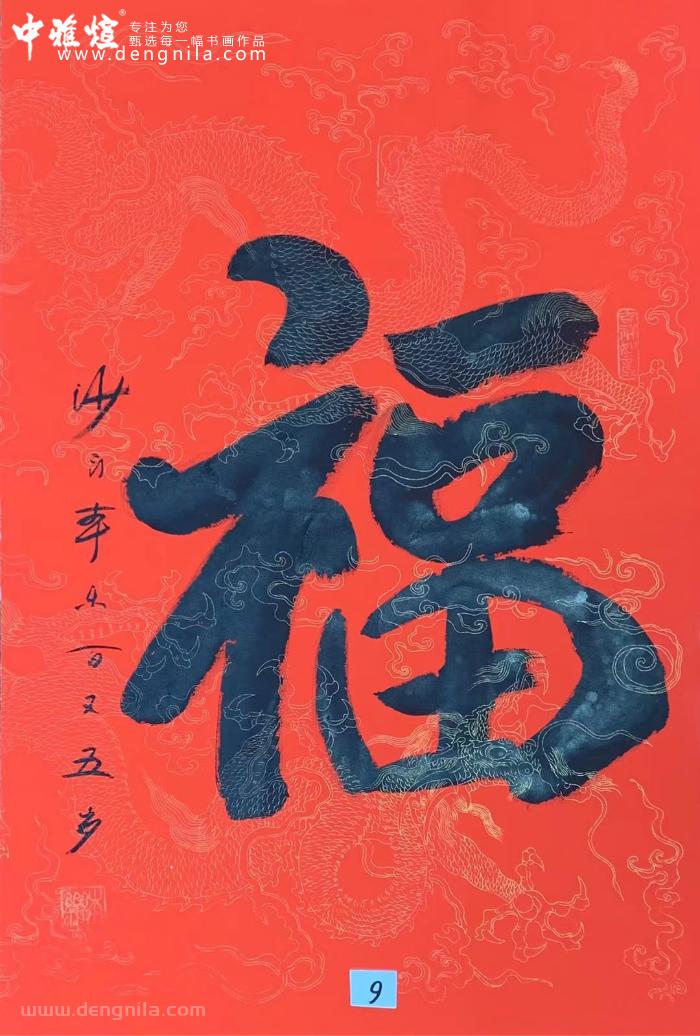 中雅煊®
专注为您
甄选每一幅书画作品
www.dengnila.com
福
年米百又五岁
9
www.dengnila.com